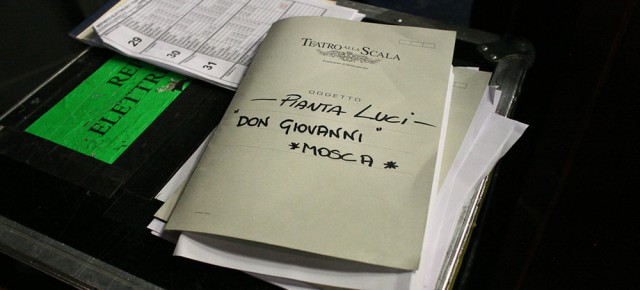 29
30
31
RE
ELETTR
TEATRO ALLA SCALA
OGGETTO
- PIANTA LUCI -
"DON GIOVANNI"
*MOSCA*